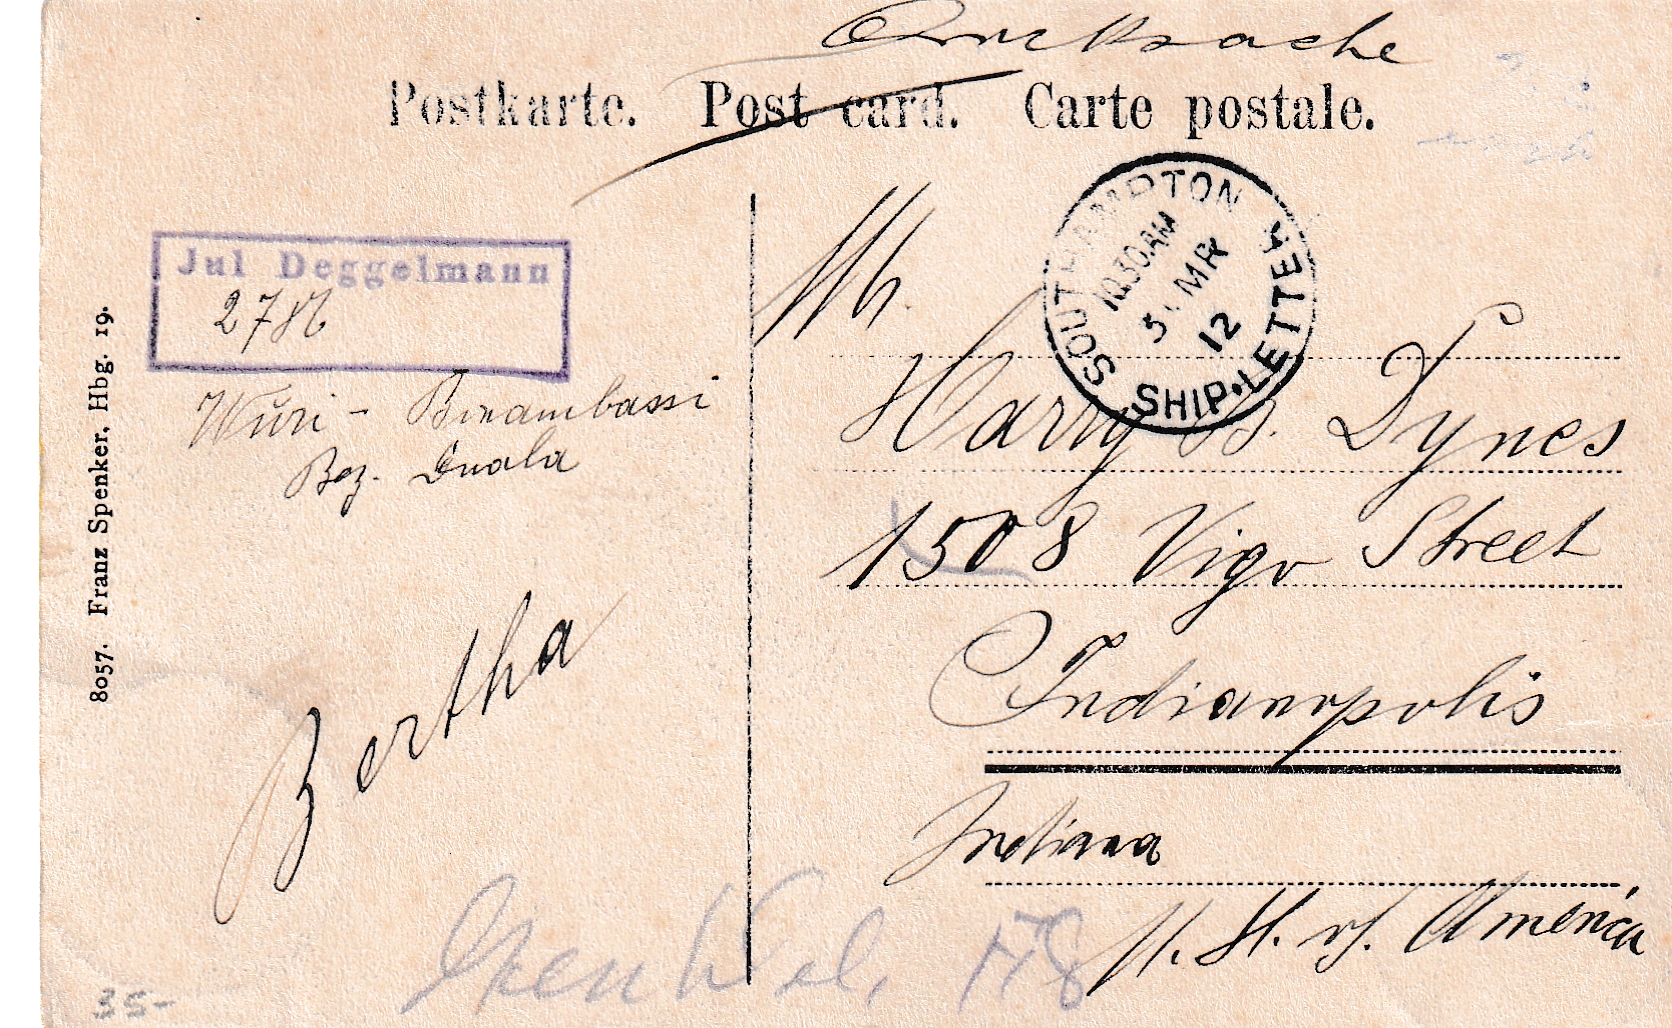 Drucksache
Postkarte. Post card. Carte postale.
SOUTHAMPTON
10.30AM
MR
12
SHIP-LETTER
Jul Deggelmann
Wŭri - Bonambassi
Bez. Duala
Bertha
8057. Franz Spenker, Hbg. 19.
Mr.
Harry B. Dynes
1508 Vigo Street
Indianapolis
Indiana
U. St. of. America
35-